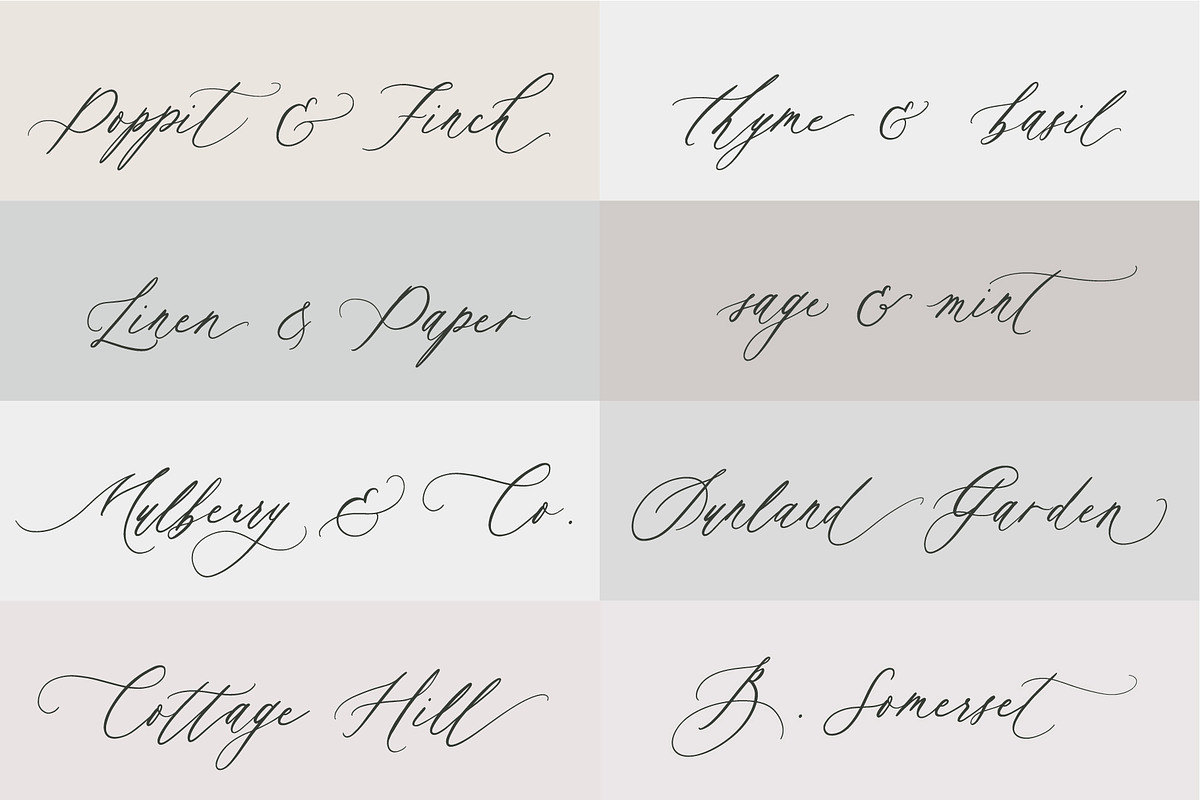 Poppit & Finch
thyme & basil
Linen & Paper
sage & mint
Mulberry & Co.
Sunland Garden
Cottage Hill
B. Somerset